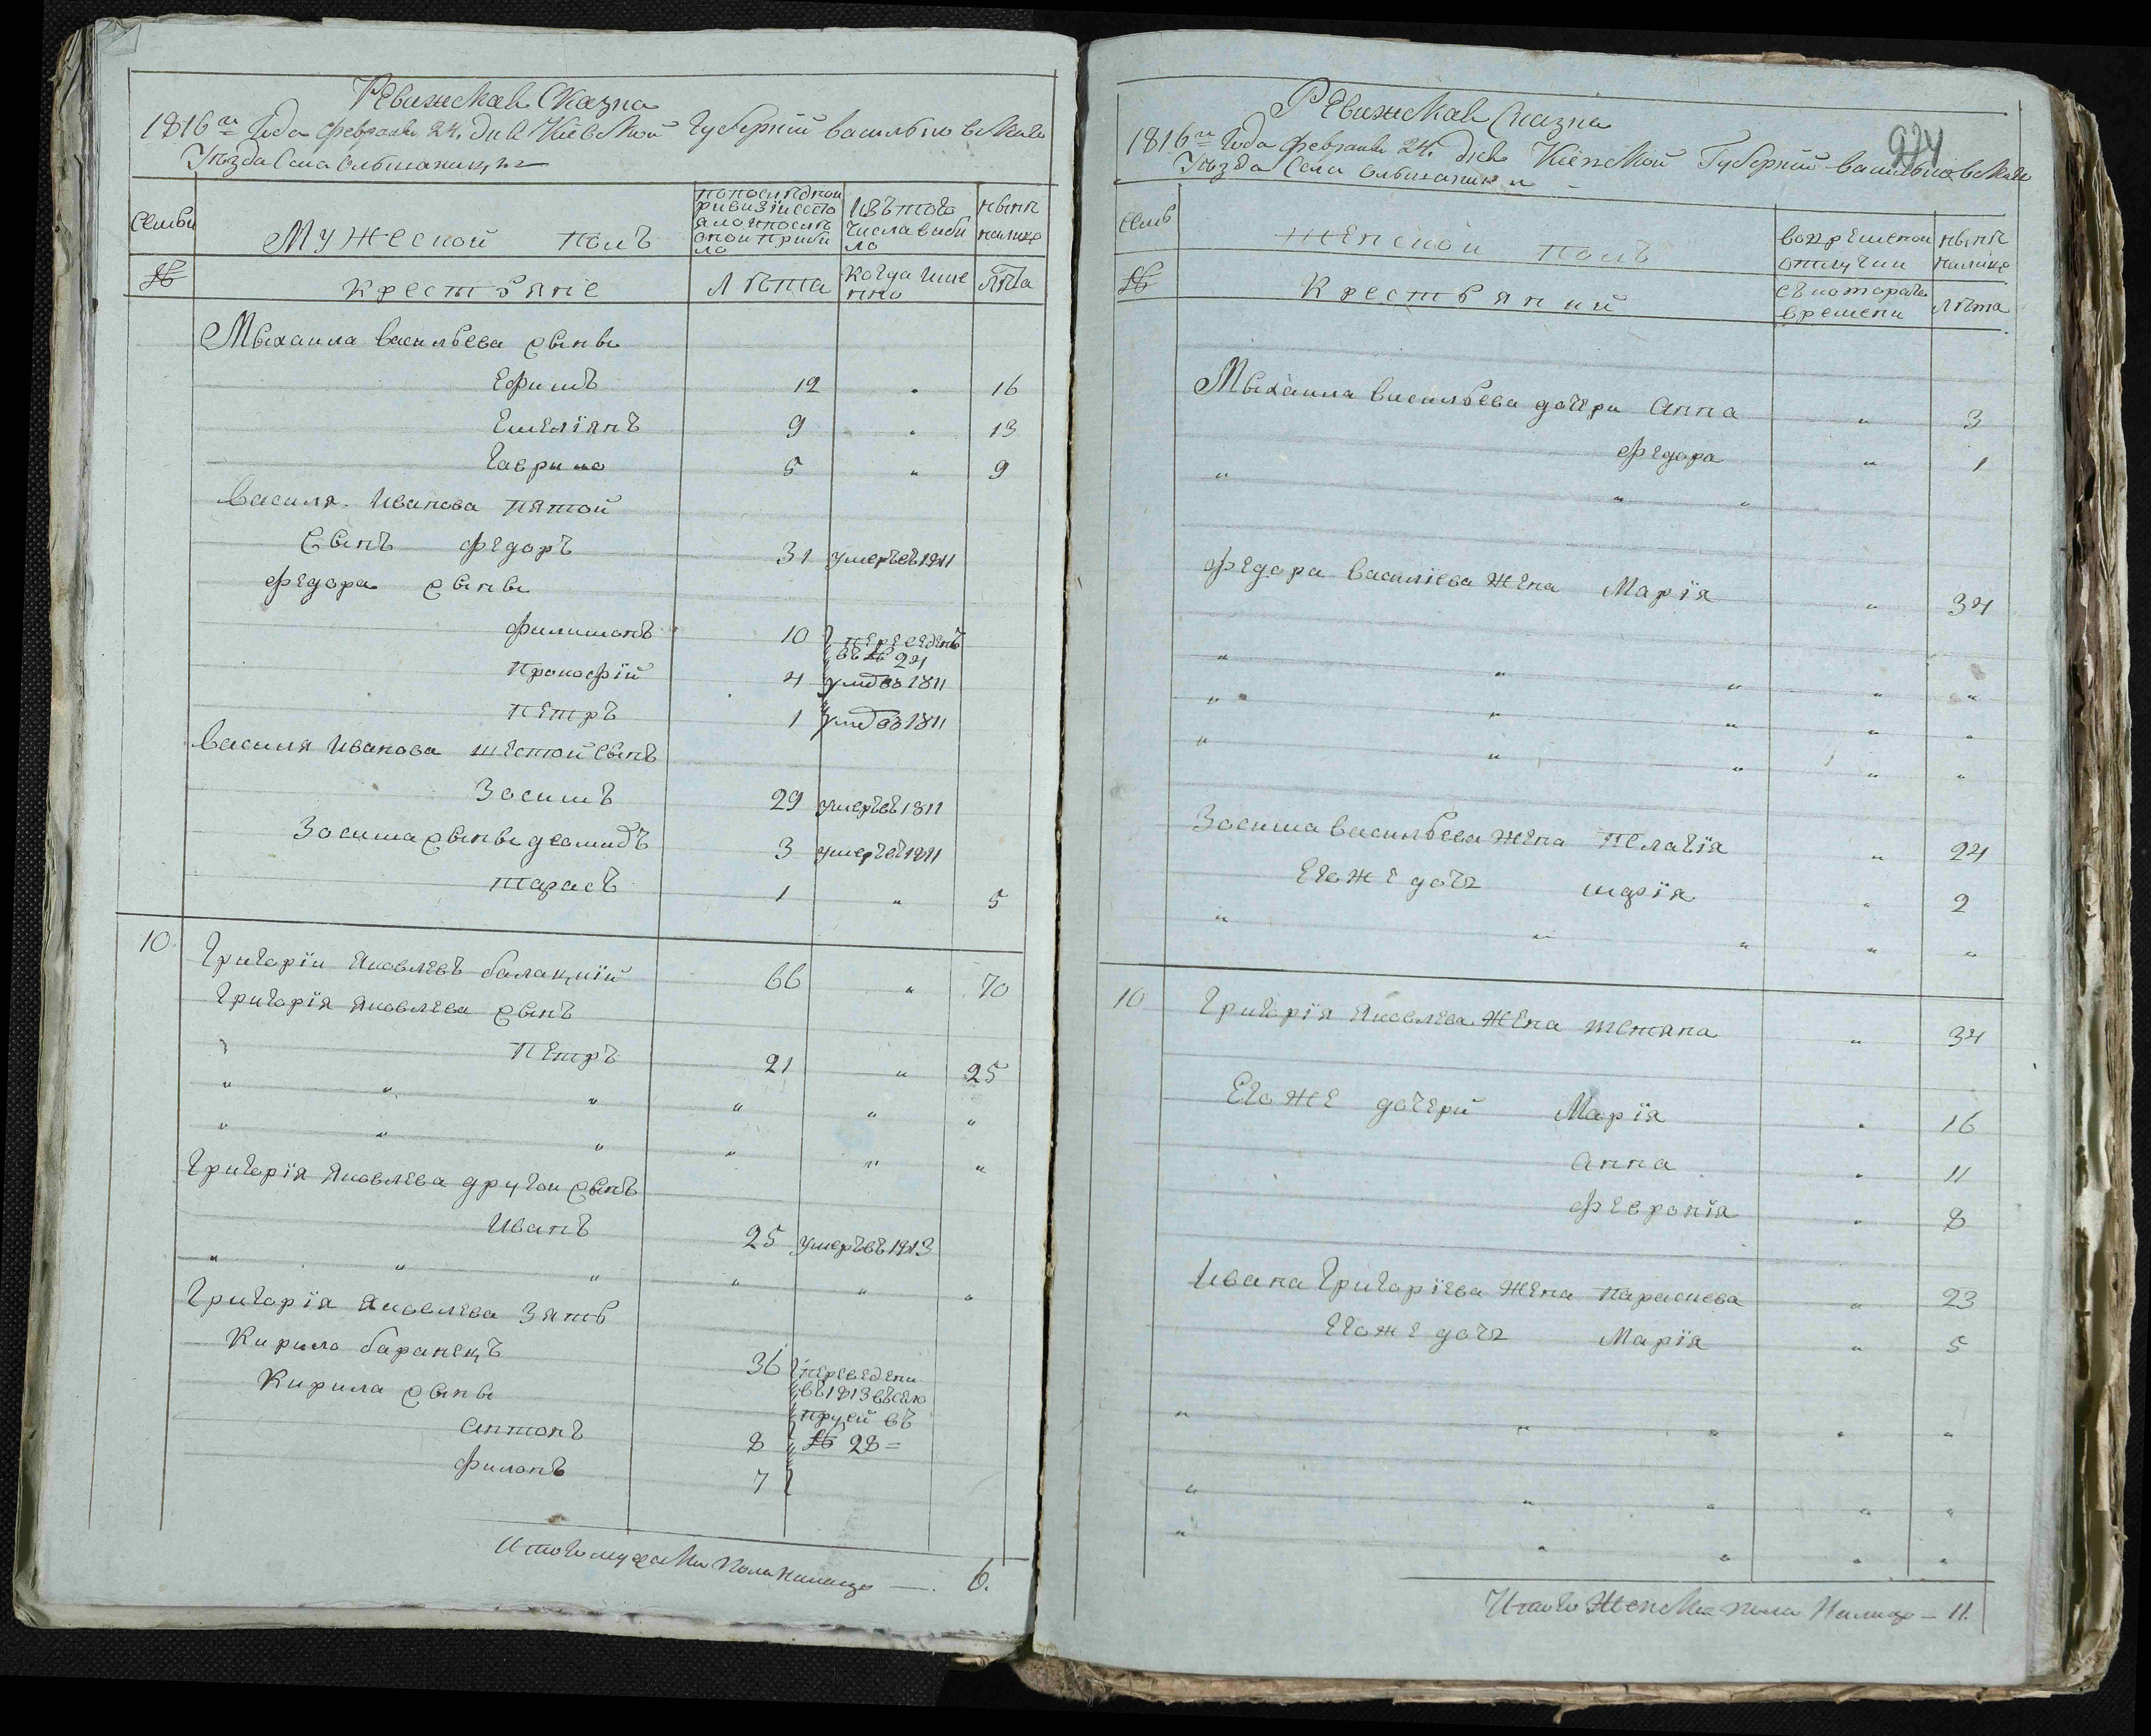 Ревижская Сказка
1816го Года февраля 24. дня Киевской Губернии васильковскаго
Уезда Села Ольшаницы
Семьи
Мужеской полъ
попоследной
ревизии состо
яло ипосле
оной прибы
ло
Изътого
Числа выбы
ло
ныне
налицо
№
Крестьяне
Лета
Когда имен
но
лета
Мыхаила васильева сыны
Ефимъ 12 16
Емелiянъ 9 " 13
Гаврило 5 " 9
Василя Иванова пятой
Сынъ Федоръ 31 умеръвъ1811
Федора сыны
Филимонъ 10 переведенъ
въ № 24
Прокофiй 4 умерво1811
Петръ 1 умерво1811
Василя Иванова шестойсынъ
Зосимъ 29 умеръвъ1811
Зосима сыны деомидъ 3 умеръвъ1811
Тарасъ 1 " 5
10 Григорiи Яковлевъ балацкiй 66 " 70
Григорiя Яковлева сынъ
Петръ 21 " 25
" " " " " "
" " " " " "
Григорiя Яковлева другои сынъ
Иванъ 25 умеръвъ1813
" " " " " "
Григорiя Яковлева Зять
Кирило баранецъ 36 переведены
въ1813въсело
Кирила сыны
пруси въ
Антонъ 8 № 28=
Филонъ 7
Итого мужеска пола налицо — 6.
Ревижская Сказка
924
1816го Года февраля 24. дня Киевской Губернии васильковскаго
Уезда Села Ольшаники
Семь
Женской полъ
вовременой
отлучки
ныне
налицо
№
Крестьянки
съкотораго
времени
Лета
Мыхаила васильева дочери Анна " 3
Федора " 1
" " "
Федора василiева жена Марiя " 34
" " " " "
" " " " "
" " " " "
Зосима васильева жена Пелагiя " 24
Егоже дочь " 2
" " " " "
10 Григорiя Яковлева жена тетяна " 34
Егоже дочерй Марiя 16
Анна 11
Феврониiя 8
Ивана Григорiева жена параскева " 23
Егоже дочь Марiя " 5
" " " " "
" " " " "
" " " " "
Итого Женска пола Налицо — 11.